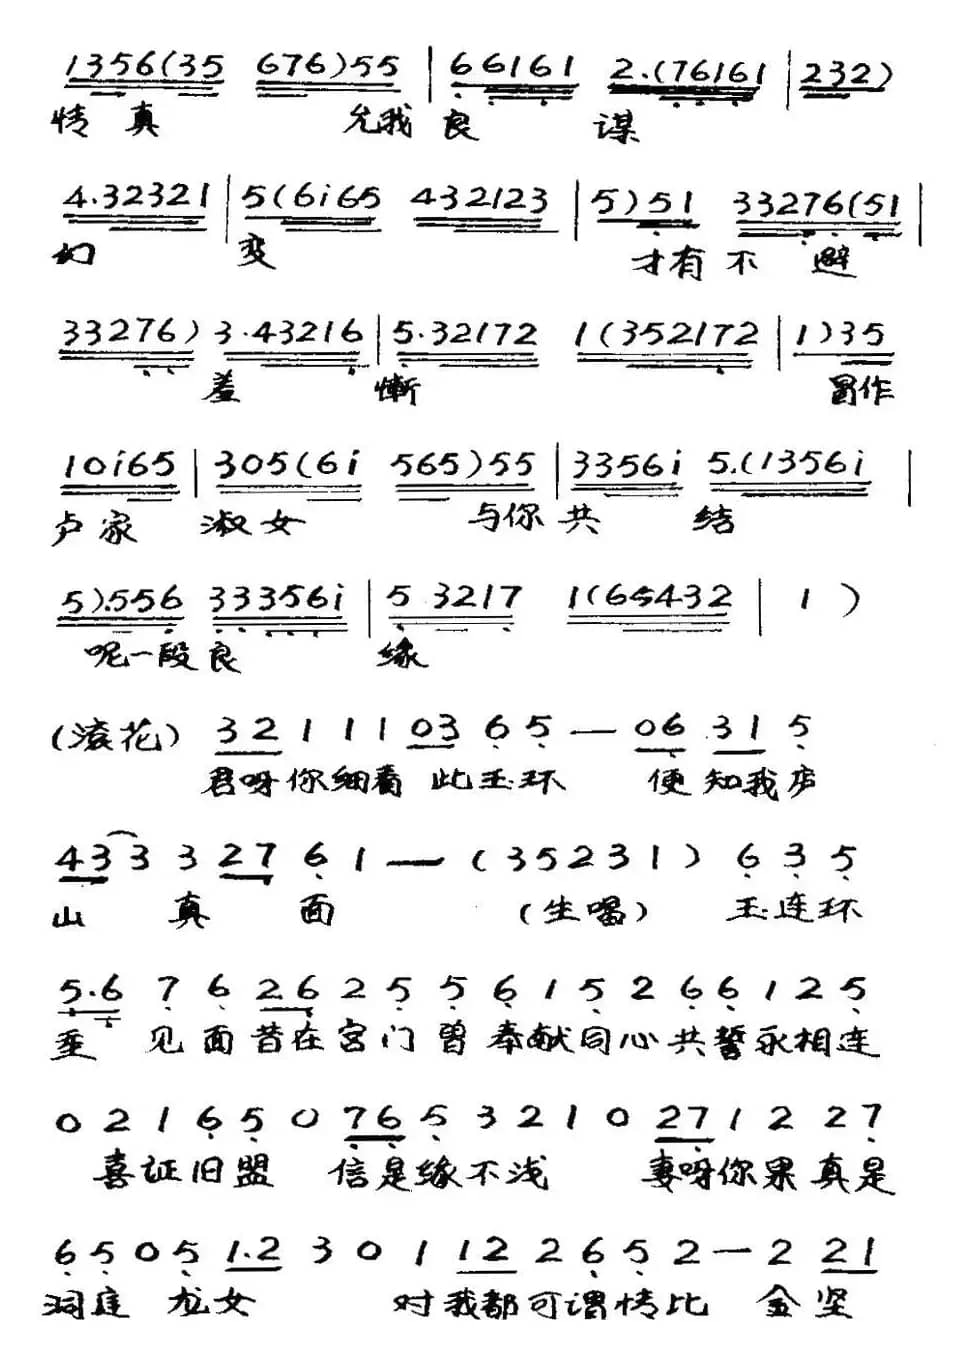 1356(35 676)55 | 66161 2.(76161 | 232)
情真 允我良 谋
4.32321 | 5(6i65 432123 | 5)51 33276(51 |
幻 变 才有不 避
33276) 3.43216 | 5.32172 1(352172 | 1)35
羞 惭 冒作
10i65 | 305(6i 565)55 | 3356i 5.(1356i |
卢家 淑女 与你共 结
5).556 33356i | 5 3217 1(65432 | 1 )
呢一段良 缘
(滚花) 32 1 1 1 03 6 5 — 06 31 5
君呀你细看 此玉环 便知我庐
43 3 3 27 6 1 — (35231) 6 3 5
山 真 面 (生唱) 玉连环
5.6 7 6 26 2 5 5 6 1 5 2 6 6 1 2 5
垂 见面昔在宫门曾奉献同心共誓永相连
0 2 1 6 5 0 76 5 3 2 1 0 27 1 2 27
喜证旧盟 信是缘不浅 妻呀你果真是
6 5 0 5 1.2 3 0 1 12 2 6 5 2 — 2 21
洞庭 龙女 对我都可谓情比 金坚